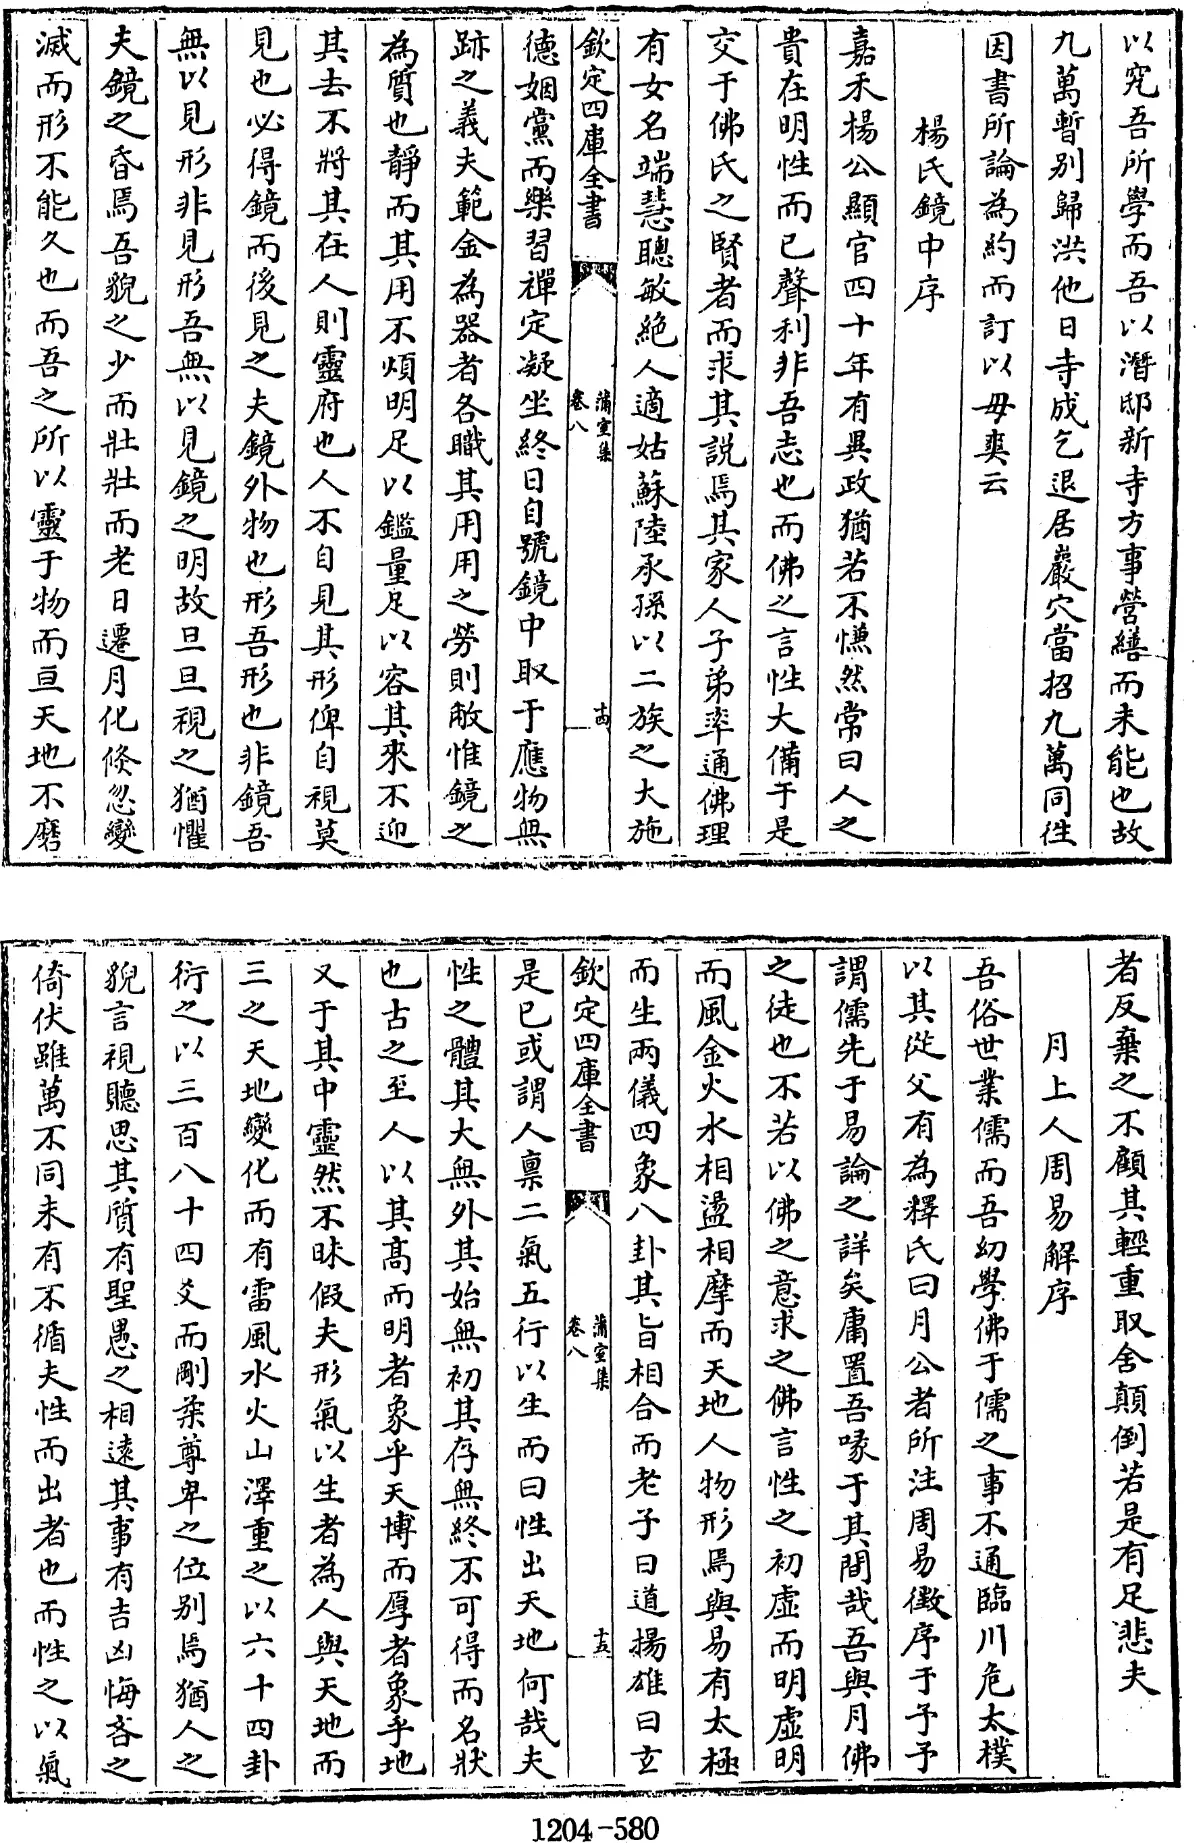 以究吾所學而吾以潛邸新寺方事營繕而未能也故
九萬暫别歸洪他日寺成乞退居巖穴當招九萬同徃
因書所論為約而訂以毋爽云
楊氏鏡中序
嘉禾楊公顯官四十年有異政猶若不慊然常曰人之
貴在明性而已聲利非吾志也而佛之言性大備于是
交于佛氏之賢者而求其説焉其家人子弟率通佛理
有女名端慧聰敏絶人適姑蘇陸承孫以二族之大施
欽定四庫全書
蒲室集
卷八
十四
德姻黨而樂習禪定凝坐終日自號鏡中取于應物無
跡之義夫範金為器者各職其用用之勞則敝惟鏡之
為質也靜而其用不煩明足以鑑量足以容其來不迎
其去不將其在人則靈府也人不自見其形俾自視莫
見也必得鏡而後見之夫鏡外物也形吾形也非鏡吾
無以見形非見形吾無以見鏡之明故旦旦視之猶懼
夫鏡之昏焉吾貌之少而壯壯而老日遷月化倐忽變
滅而形不能久也而吾之所以靈于物而亘天地不磨
者反棄之不顧其輕重取舍顛倒若是有足悲夫
月上人周易解序
吾俗世業儒而吾幼學佛于儒之事不通臨川危太樸
以其從父有為釋氏曰月公者所注周易徴序于予予
謂儒先于易論之詳矣庸置吾喙于其間哉吾與月佛
之徒也不若以佛之意求之佛言性之初虛而明虛明
而風金火水相盪相摩而天地人物形焉與易有太極
而生兩儀四象八卦其旨相合而老子曰道揚雄曰玄
欽定四庫全書
蒲室集
卷八
十五
是已或謂人禀二氣五行以生而曰性出天地何哉夫
性之體其大無外其始無初其存無終不可得而名狀
也古之至人以其髙而明者象乎天博而厚者象乎地
又于其中靈然不昧假夫形氣以生者為人與天地而
三之天地變化而有雷風水火山澤重之以六十四卦
衍之以三百八十四爻而剛柔尊卑之位别焉猶人之
貌言視聽思其質有聖愚之相逺其事有吉凶悔吝之
倚伏雖萬不同未有不循夫性而出者也而性之以氣
1204-580